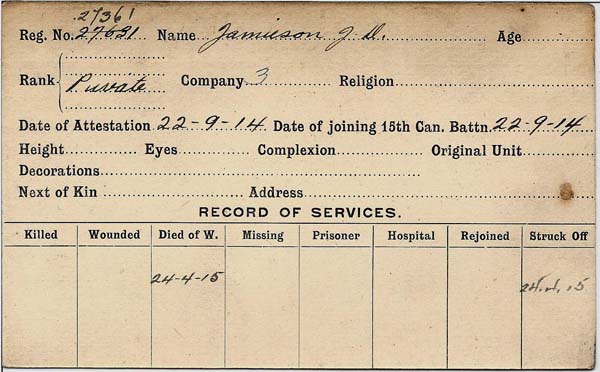 27361
Reg. No. 27631 Name Jamieson J. D. Age
Rank Private Company 3 Religion
Date of Attestation 22-9-14 Date of joining 15th Can. Battn. 22-9-14
Height Eyes Complexion Original Unit
Decorations
Next of Kin Address
RECORD OF SERVICES.
Killed Wounded Died of W. Missing Prisoner Hospital Rejoined Struck Off
24-4-15 24.4.15